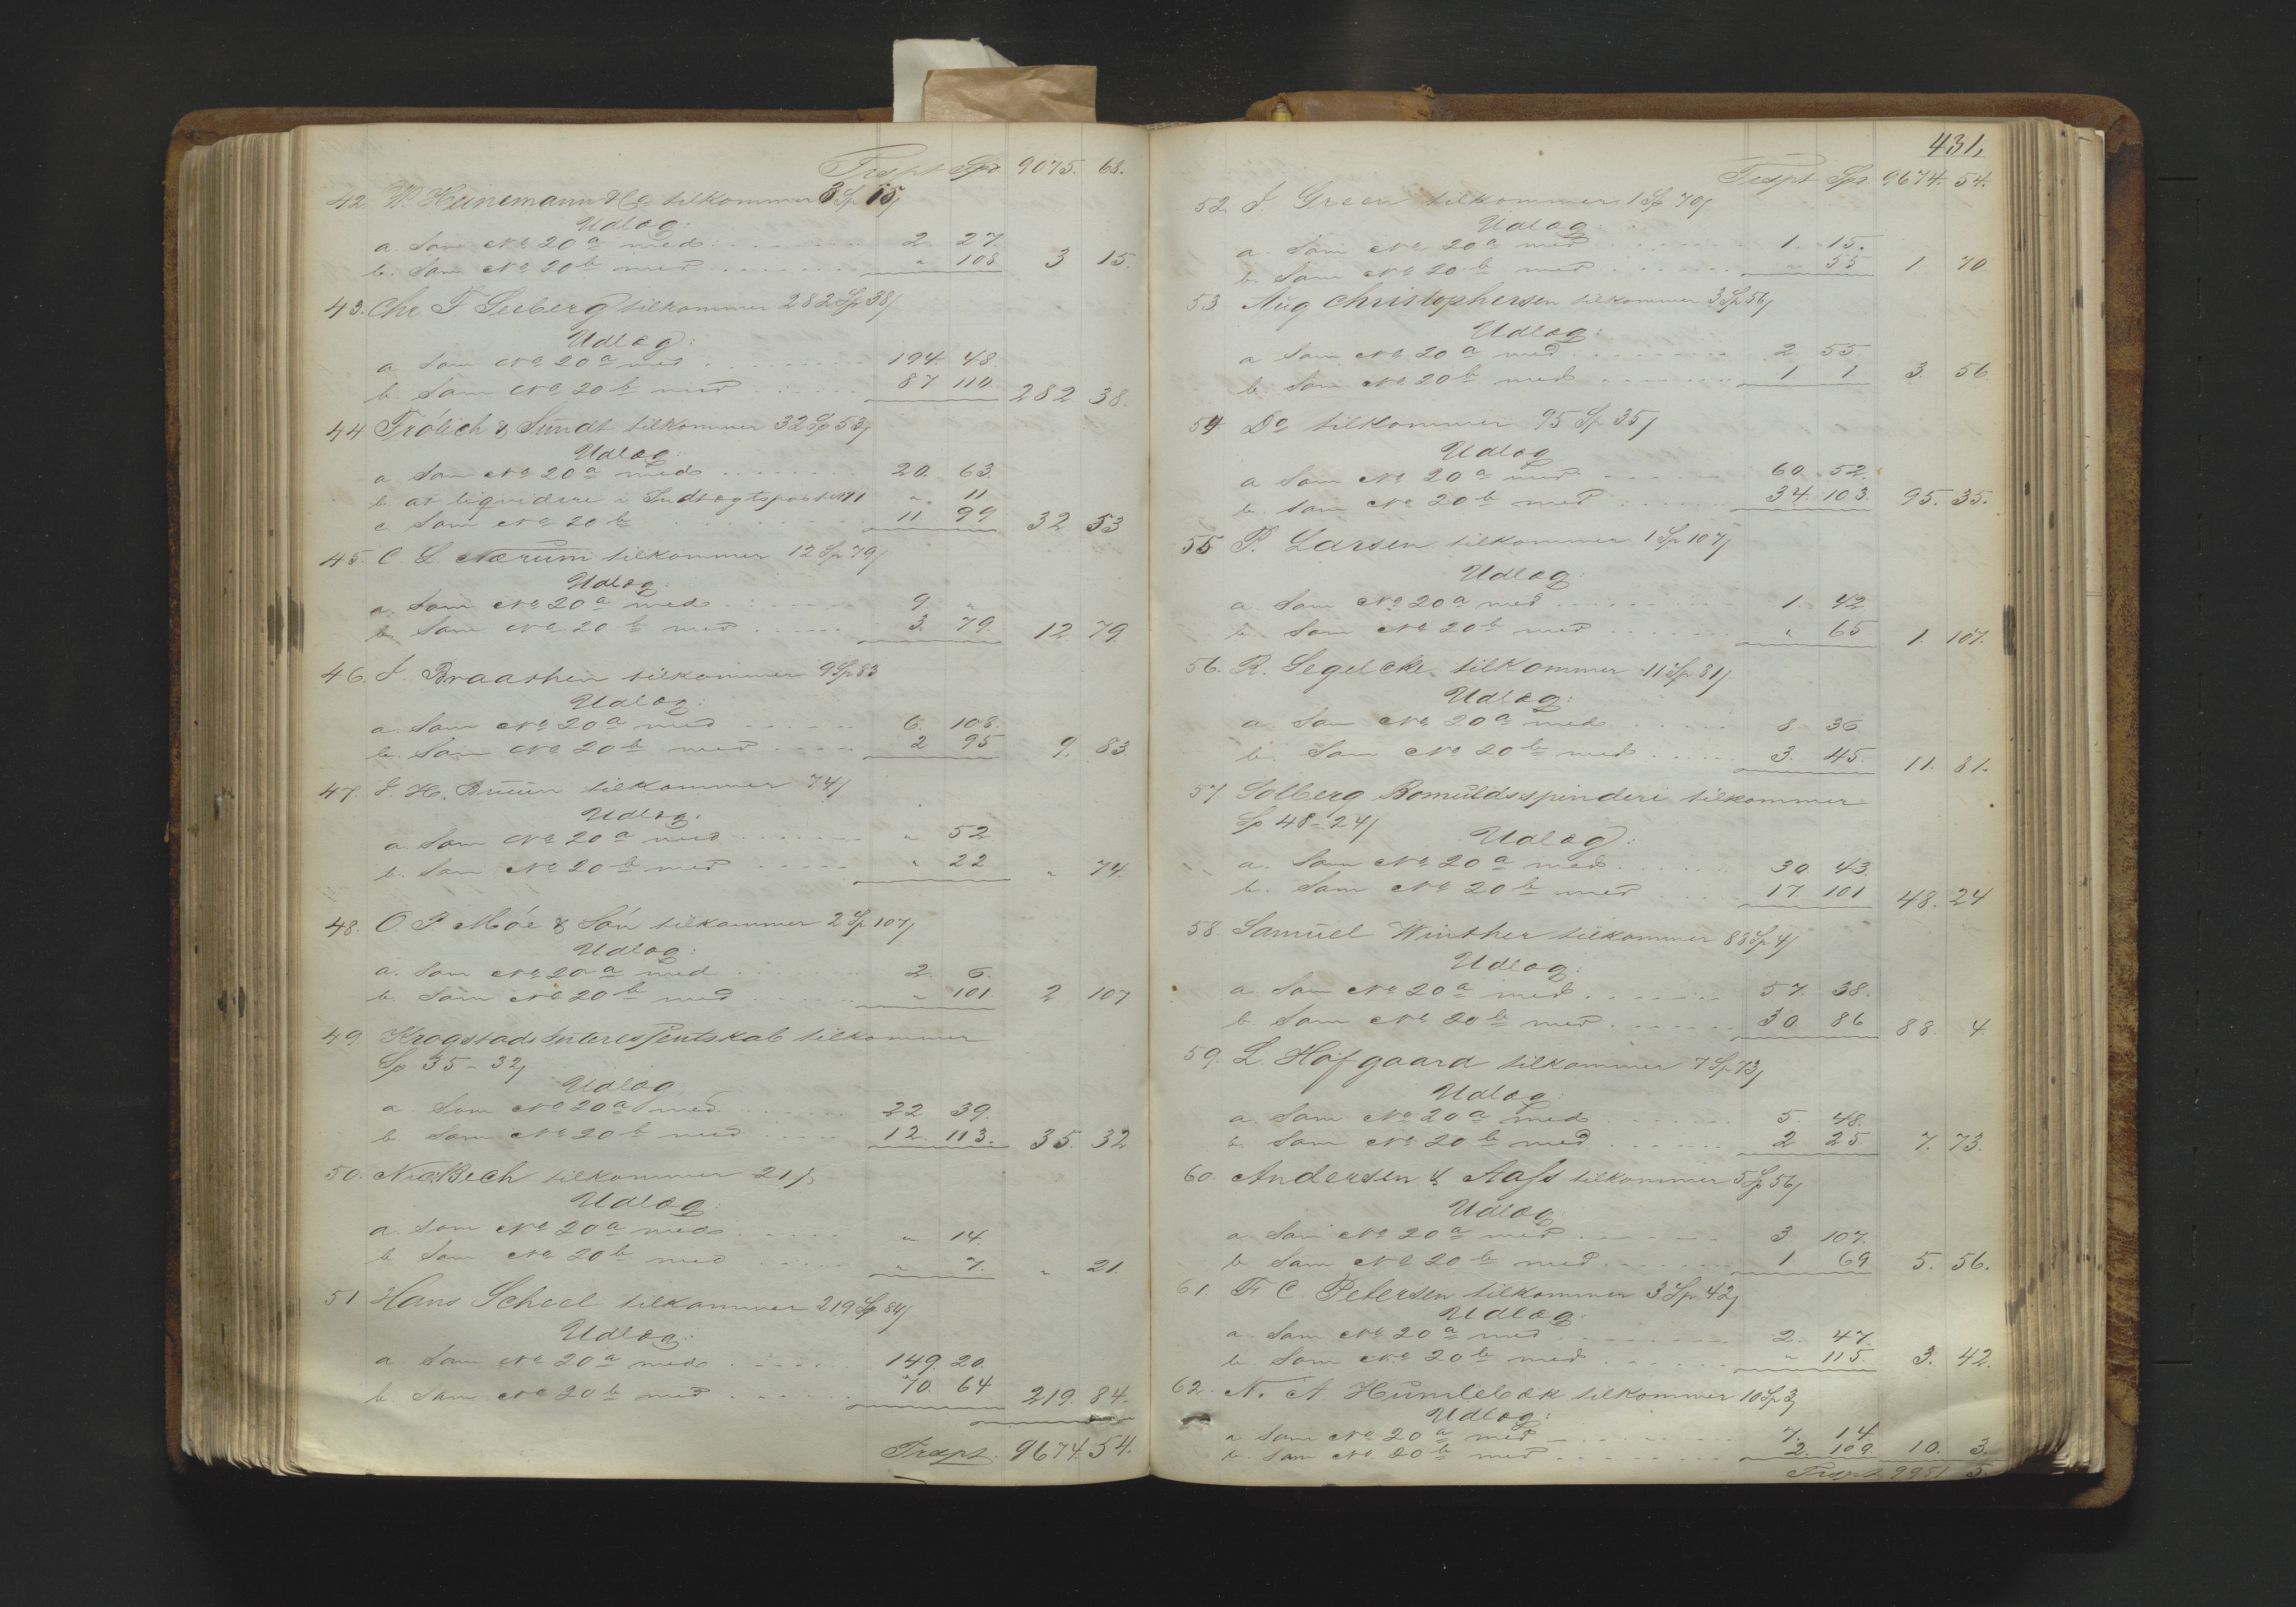 Trspt Spd. 9075. 68.
42. W. Heinemann & Co tilkommer 3 Sp 15/
Udlæg:
a. Som No 20 a med 2 27.
b. Som No 20 b med " 108 3 15.
43. Chr F. Seeberg tilkommer 282 Sp 38/
Udlæg:
a Som No 20 a med 194 48.
b. Som No 20 b med 87 110 282 38.
44 Frölich & Sundt tilkommer 32 Sp 53/
Udlæg:
a Som No 20 a med 20. 63.
b. at liqvidere i Indtægtspost No 71 " 11
c. Som No 20 b 11. 99 32 53
45. C L. Nærum tilkommer 12 Sp 79/
Udlæg:
a. Som No 20 a med 9. "
b. Som No 20 b med 3. 79. 12 79.
46. J. Braathen tilkommer 9 Sp 83
Udlæg:
a. Som No 20 a med 6. 108.
b. Som No 20 b med 2 95 9. 83.
47. J. H. Bruun tilkommer 74/
Udlæg:
a. Som No 20 a med " 52
b. Som No 20 b med " 22 " 74.
48. O P. Móe & Són tilkommer 2 Sp 107/
Udlæg:
a. Som No 20 a med 2. 6.
b. Som No 20 b med " 101. 2 107
49. Krogstads Interessentskab tilkommer
Sp 35 - 32/
Udlæg
a. Som No 20 a med 22 39.
b. Som No 20 b med 12. 113. 35. 32
50. Nic. Bech tilkommer 21/
Udlæg:
a. Som No 20 a med " 14.
b Som No 20 b med " 7. " 21.
51. Hans Scheel tilkommer 219 Sp 84/
Udlæg:
a Som No 20 a med 149. 20.
b. Som No 20 b med 70. 64 219. 84.
Trspt. 9674 54.
431,
Trspt Spd. 9674. 54.
52. J. Green tilkommer 1 Sp 70/
Udlæg:
a. Som No 20 a med 1. 15.
b. Som No 20 b med " 55 1. 70.
53 Aug Christophersen tilkommer 3 Sp 56/
Udlæg:
a Som No 20 a med 2 55
b. Som No 20 b med 1. 1. 3. 56
54. Do tilkommer 95 Sp 35/
Udlæg
a Som No 20 a med 60. 52.
b. Som No 20 b med 34. 103. 95. 35.
55 P. Larsen tilkommer 1 Sp 107/
Udlæg:
a. Som No 20 a med 1. 42
b. Som No 20 b med " 65 1. 107.
56. R. Segelcke tilkommer 11 Sp 81/
Udlæg:
a. Som No 20 a med 8. 36
b. Som No 20 b med 3. 45. 11. 81.
57 Solberg Bomuldsspinderi tilkommer
Sp 48 - 24/
Udlæg:
a. Som No 20 a med 30. 43.
b. Som No 20 b med 17 101 48. 24
58. Samuel Winther tilkommer 88 Sp 4/
Udlæg:
a. Som No 20 a med 57. 38.
b. Som No 20 b med 30 86 88. 4.
59. L. Hofgaard tilkommer 7 Sp 73/
Udlæg:
a. Som No 20 a med 5. 48.
b. Som No 20 b med 2 25. 7. 73.
60. Andersen & Aass tilkommer 5 Sp 56/
Udlæg.
a. Som No 20 a med 3 107.
b Som No 20 b med 1. 69 5. 56.
61. F. C. Petersen tilkommer 3 Sp 42/
Udlæg:
a. Som No 20 a med 2. 47.
b. Som No 20 b med " 115. 3. 42.
62. N. A Humlebæk tilkommer 10 Sp 3/
Udlæg:
a Som No 20 a med 7. 14.
b. Som No. 20 b med 2. 109. 10. 3.
Trspt 9951 5.